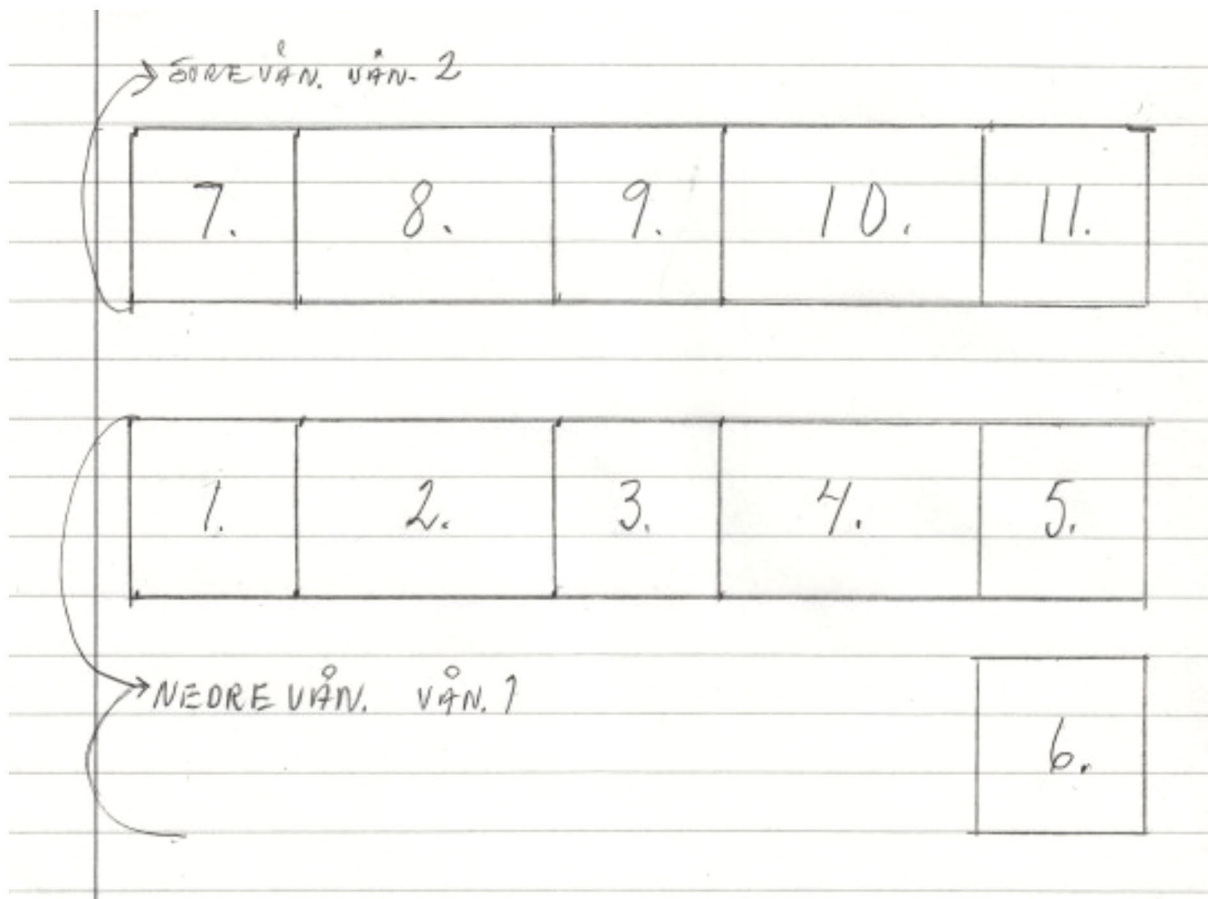 ÖVRE VÅN. VÅN. 2
7. 8. 9. 10. 11.
1. 2. 3. 4. 5.
NEDRE VÅN. VÅN. 1
6.